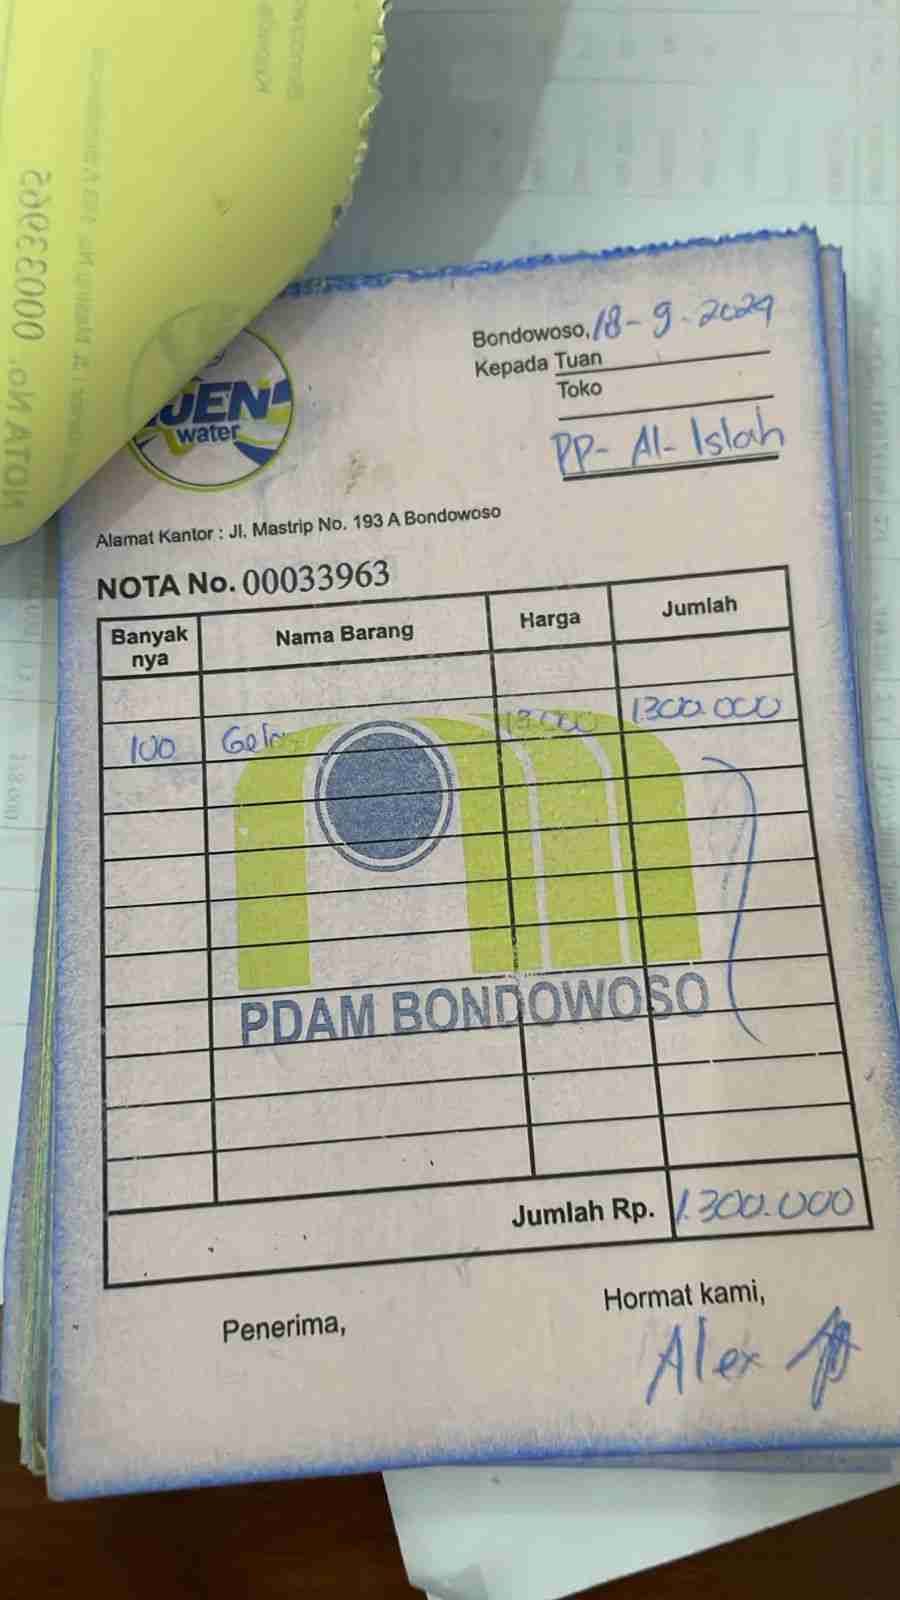 NOTA No. 00033965
JEN
water
Bondowoso, 18-9-2024
Kepada Tuan
Toko
PP- Al- Islah
Alamat Kantor : Jl. Mastrip No. 193 A Bondowoso
NOTA No. 00033963
Banyak nya Nama Barang Harga Jumlah
100 13.000 1.300.000
PDAM BONDOWOSO
Jumlah Rp. 1.300.000
Penerima,
Hormat kami,
Alex